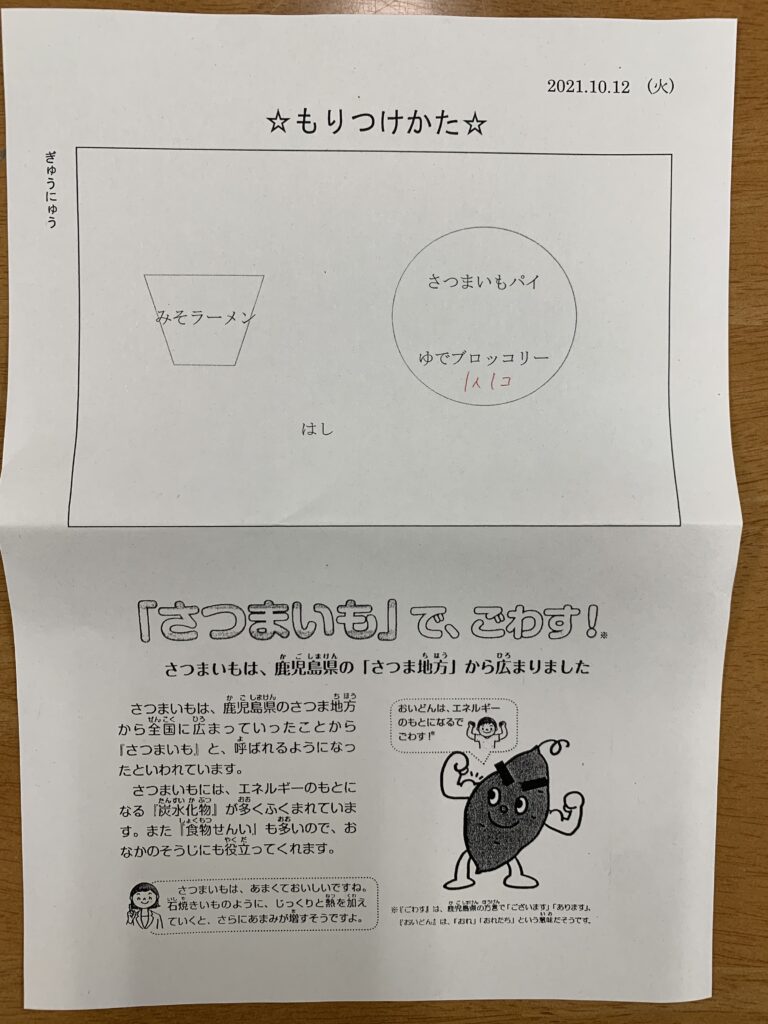 2021.10.12 （火）
☆もりつけかた☆
ぎゅうにゅう
みそラーメン
さつまいもパイ
ゆでブロッコリー
1人1コ
はし
「さつまいも」で、ごわす！※
さつまいもは、鹿児島県の「さつま地方」から広まりました
さつまいもは、鹿児島県のさつま地方
から全国に広まっていったことから
『さつまいも』と、呼ばれるようになっ
たといわれています。
さつまいもには、エネルギーのもとに
なる『炭水化物』が多くふくまれていま
す。また『食物せんい』も多いので、お
なかのそうじにも役立ってくれます。
おいどんは、エネルギー
のもとになるで
ごわす！※
さつまいもは、あまくておいしいですね。
石焼きいものように、じっくりと熱を加え
ていくと、さらにあまみが増すそうですよ。
※『ごわす』は、鹿児島県の方言で「ございます」「あります」、
『おいどん』は、「おれ」「おれたち」という意味だそうです。